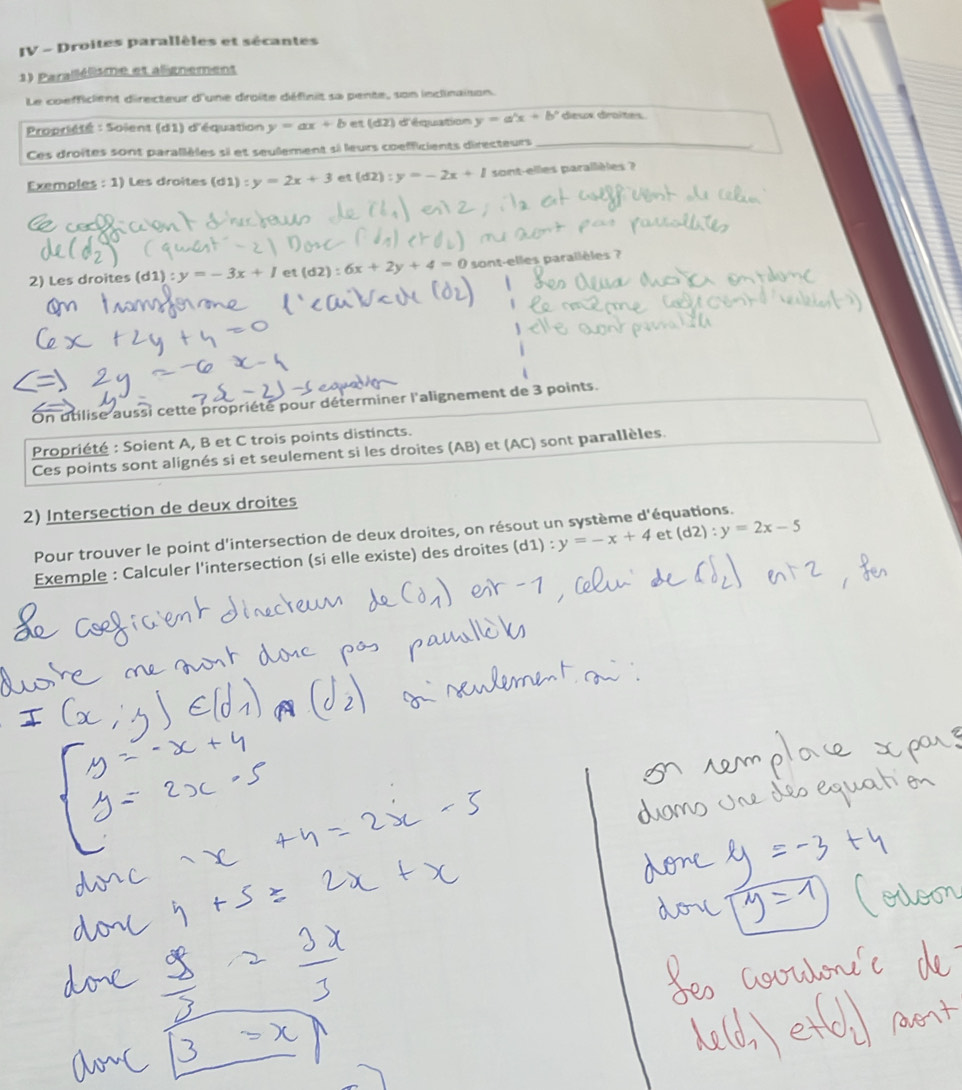 IV - Droites parallèles et sécantes
1) Parallélisme et alignement
Le coefficient directeur d'une droite définit sa pente, son inclinaison.
Propriété : Soient (d1) d'équation y = ax + b et (d2) d'équation y = a'x + b' deux droites.
Ces droites sont parallèles si et seulement si leurs coefficients directeurs
Exemples : 1) Les droites (d1) : y = 2x + 3 et (d2) : y = - 2x + 1 sont-elles parallèles ?
Le coefficient directeur de (d1) est 2, il est coefficient de celui
de (d2) (quest -2) Donc (d1) et d2) ne sont pas parallèles
2) Les droites (d1) : y = - 3x + 1 et (d2) : 6x + 2y + 4 = 0 sont-elles parallèles ?
on transforme l'
6x + 2y + 4 = 0
<=> 2y = -6x - 4
<=> y =
Les deux droites ont donc
le meme
elle sont
On utilise aussi cette propriété pour déterminer l'alignement de 3 points.
Propriété : Soient A, B et C trois points distincts.
Ces points sont alignés si et seulement si les droites (AB) et (AC) sont parallèles.
2) Intersection de deux droites
Pour trouver le point d'intersection de deux droites, on résout un système d'équations.
Exemple : Calculer l'intersection (si elle existe) des droites (d1) : y = - x + 4 et (d2) : y = 2x - 5
Le coeficient directeur de (d1) est -1, celui de (d2) est 2, les
droire ne sont donc pas parallèles
I (x ; y) ∈ (d1) ∩ (d2) si seulement si :
y = -x + 4
y = 2x - 5
donc -x + 4 = 2x - 5
donc 4 + 5 = 2x + x
donc 9/3 = 3x/3
donc 3 = x
on remplace x par 3
dans une des equation
donc y = -3 + 4
donc y = 1
Les coordonée de
de (d1) et (d2) sont